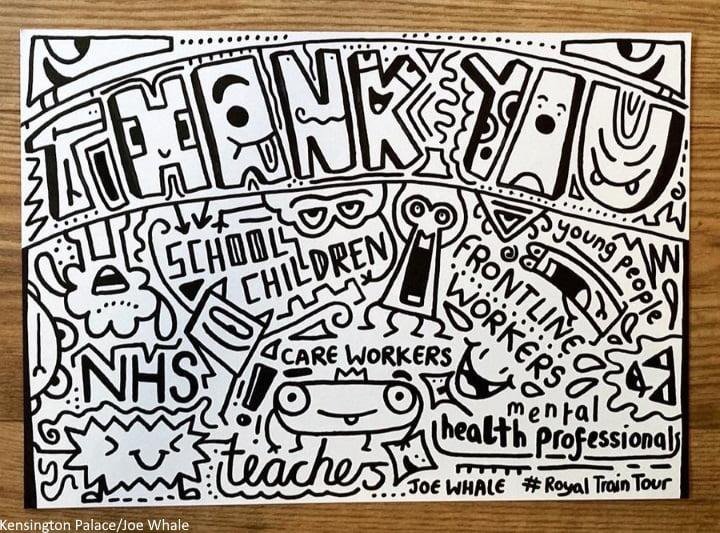 THANK YOU
SCHOOL
CHILDREN
FRONTLINE
WORKERS
& young people
NHS
CARE WORKERS
mental
health professionals
teachers
JOE WHALE # Royal Train Tour
Kensington Palace/Joe Whale